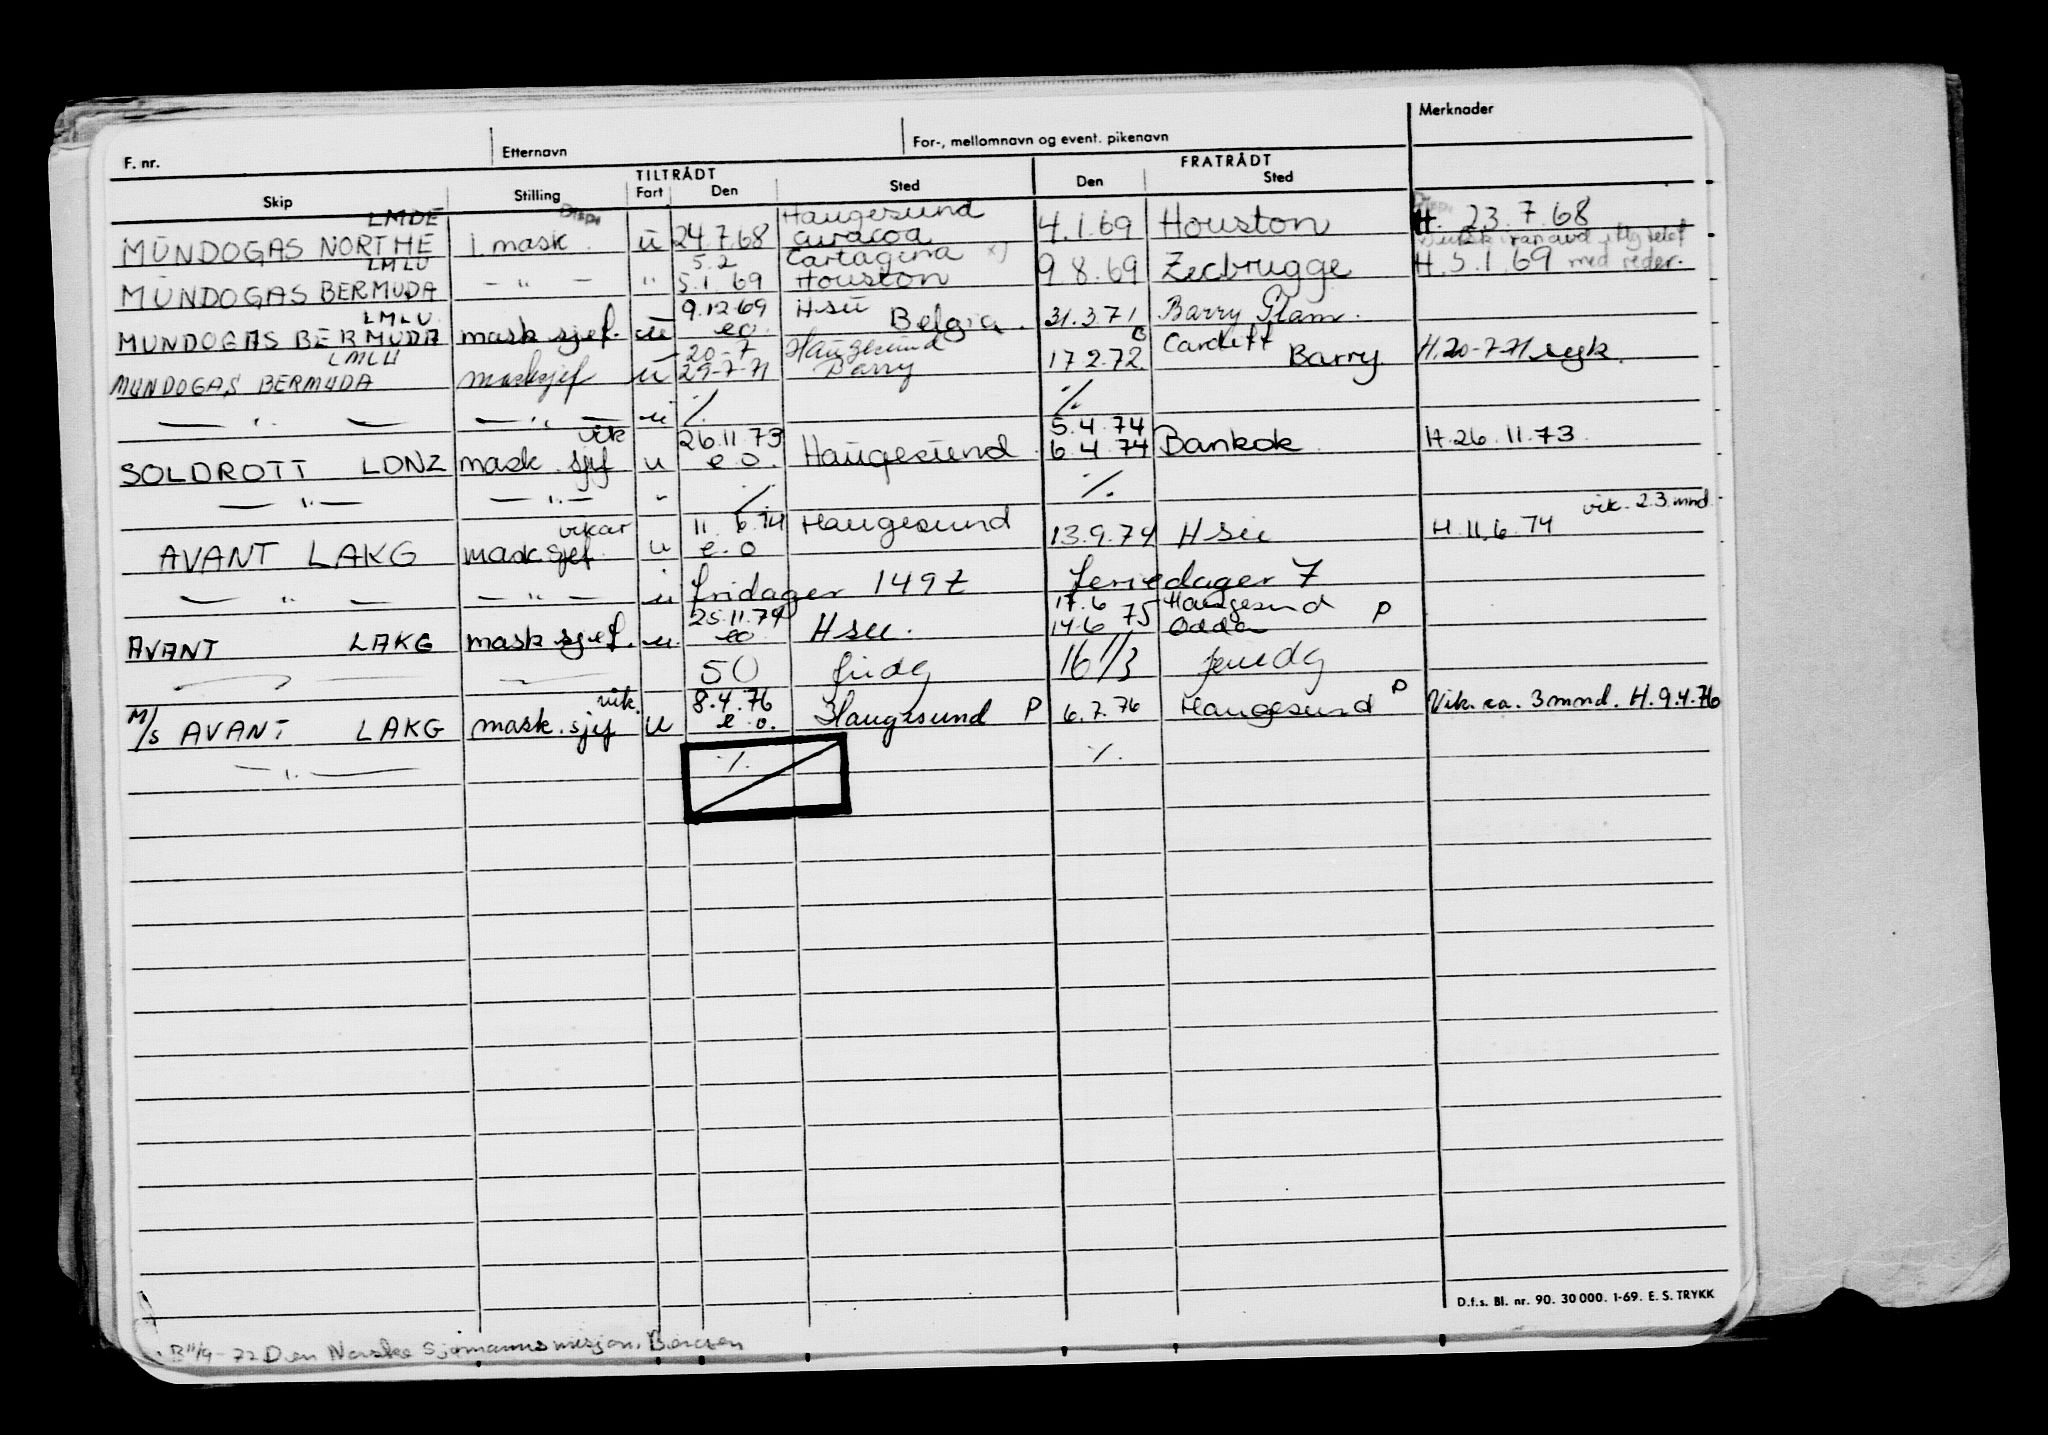 F. nr. Etternavn For-, mellomnavn og event. pikenavn Merknader
TILTRÅDT FRATRÅDT
Skip Stilling Fart Den Sted Den Sted
LMDE Disp. Haugesund Disp.
MUNDOGAS NORTHE 1. mask. u 24.7.68 Curacoa 4.1.69 Houston H. 23.7.68
LMLU 5.2 Cartagena x)
MUNDOGAS BERMUDA - " - " 5.1.69 Houston 9.8.69 Zeebrugge H.5.1.69 med reder.
LMLU. 9.12.69 Hsu
MUNDOGAS BERMUDA mask sjef. u eo. Belgia. 31.3.71 Barry
LMLU 20-7 Haugesund Cardiff
MUNDOGAS BERMUDA masksjef u 29-7-71 Barry 17 2.72. Barry H.20-7-71 syk.
— " — — " — u ./. ./.
vik 26.11.73 5.4.74
SOLDROTT LDNZ mask. sjef u e.o. Haugesund 6.4.74 Bankok H.26.11.73.
— " — — " — " ./. ./.
vikar 11.6.74 Haugesund vik. 2.3.mnd.
AVANT LAKG mask sjef. u e.o 13.9.74 Hsu H.11.6.74
— " — — " — u fridager 149 feriedager 7
25.11.74 17.6 Haugesund
AVANT LAKG mask sjef. u. eo Hsu. 14.6 75 Odda P
50 fridg 16 1/3 feriedg
vik. 8.4.76
M/S AVANT LAKG mask. sjef u e.o. Haugesund P 6.7.76 Haugesund P Vik. ca. 3 mnd. H.9.4.76
— " — ./. ./.
D.f.s. Bl. nr. 90. 30 000. 1-69. E. S. TRYKK
B 11/9-72 Den Norske Sjømannsmisjon, Bergen